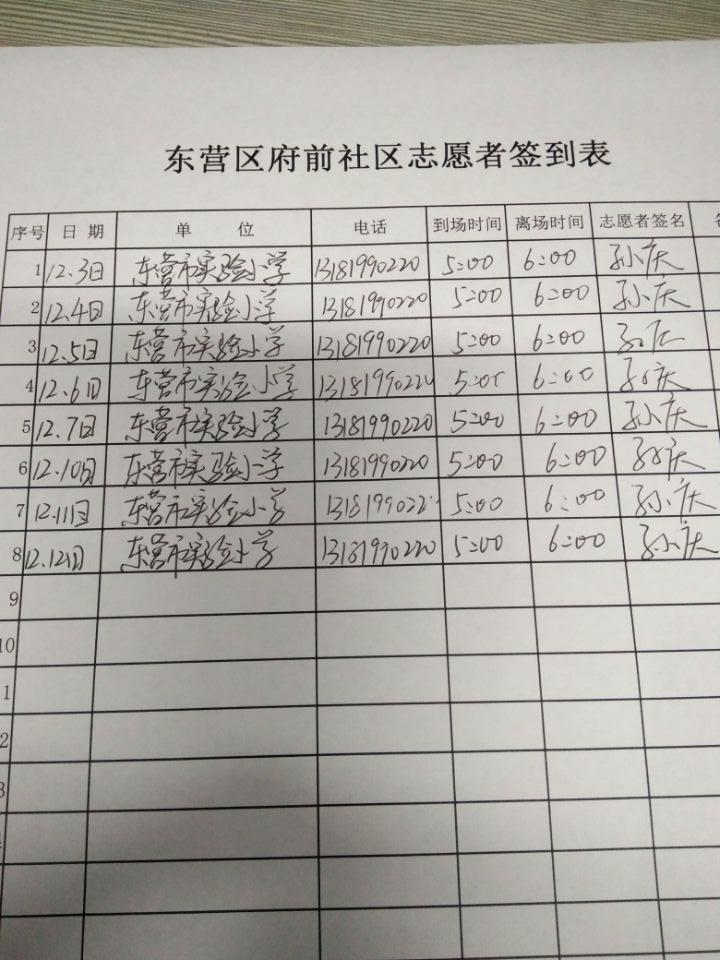 东营区府前社区志愿者签到表
序号 日期 单位 电话 到场时间 离场时间 志愿者签名
1 12.3日 东营市实验小学 13181990220 5:00 6:00 孙小庆
2 12.4日 东营市实验小学 13181990220 5:00 6:00 孙小庆
3 12.5日 东营市实验小学 13181990220 5:00 6:00 孙小庆
4 12.6日 东营市实验小学 1318199022 5:00 6:00 孙小庆
5 12.7日 东营市实验小学 13181990220 5:00 6:00 孙小庆
6 12.10日 东营市实验小学 13181990220 5:00 6:00 孙小庆
7 12.11日 东营市实验小学 1318199022 5:00 6:00 孙小庆
8 12.12日 东营市实验小学 13181990220 5:00 6:00 孙小庆
9
10
1
2
3